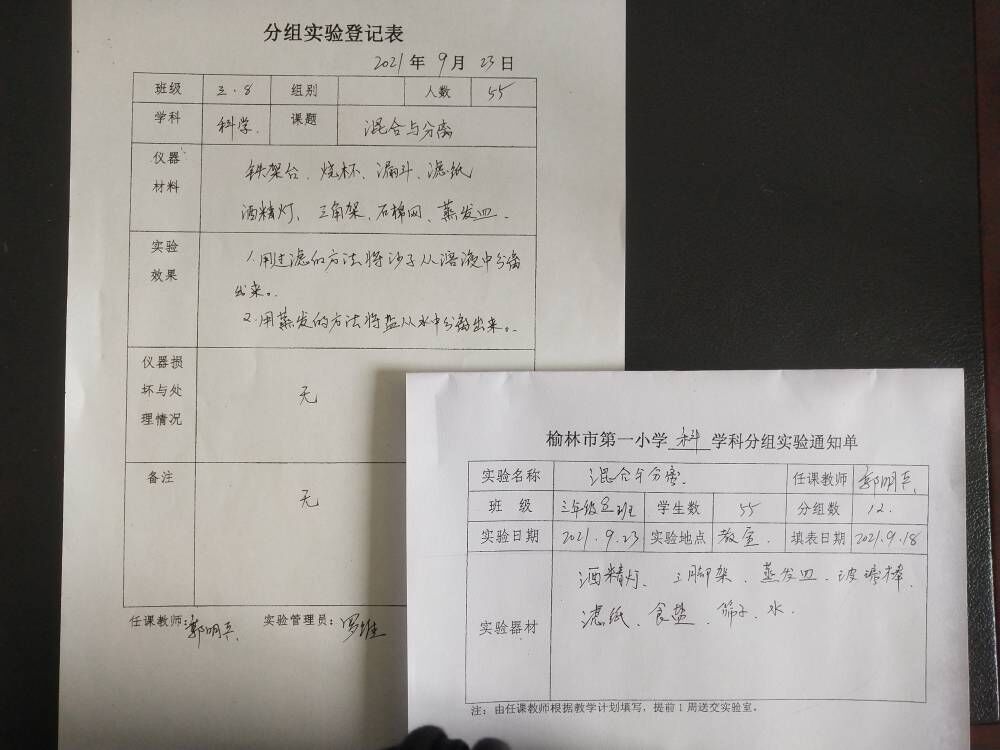 分组实验登记表
2021年 9月 23日
班级 三.8 组别 人数 55
学科 科学. 课题 混合与分离
仪器材料
铁架台、烧杯、漏斗、滤纸
酒精灯、三角架、石棉网、蒸发皿.
实验效果
1.用过滤的方法将沙子从溶液中分离
出来。
2.用蒸发的方法将盐从水中分离出来。
仪器损坏与处理情况
无
备注
无
任课教师:郭明兵 实验管理员:罗维
榆林市第一小学 科 学科分组实验通知单
实验名称 混合与分离. 任课教师 郭明兵
班 级 三年级8班 学生数 55 分组数 12.
实验日期 2021.9.23 实验地点 教室. 填表日期 2021.9.18
实验器材
酒精灯、三脚架、蒸发皿、玻璃棒、
滤纸、食盐、筛子、水.
注:由任课教师根据教学计划填写,提前1周送交实验室。